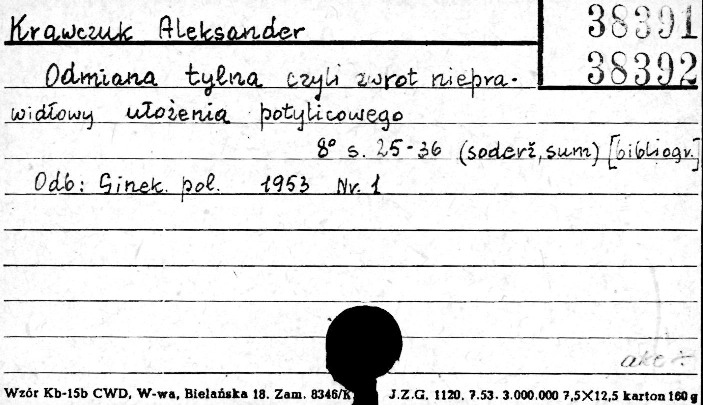 Krawczuk Aleksander
38391
38392
Odmiana tylna czyli zwrot niepra-
widłowy ułożenia potylicowego
8° s. 25-36 (soderž, sum) [bibliogr.]
Odb: Ginek. pol. 1953 Nr. 1
Wzór Kb-15b CWD, W-wa, Bielańska 18. Zam. 8346/K J.Z.G. 1120. 7.53. 3.000.000 7,5×12,5 karton 160 g